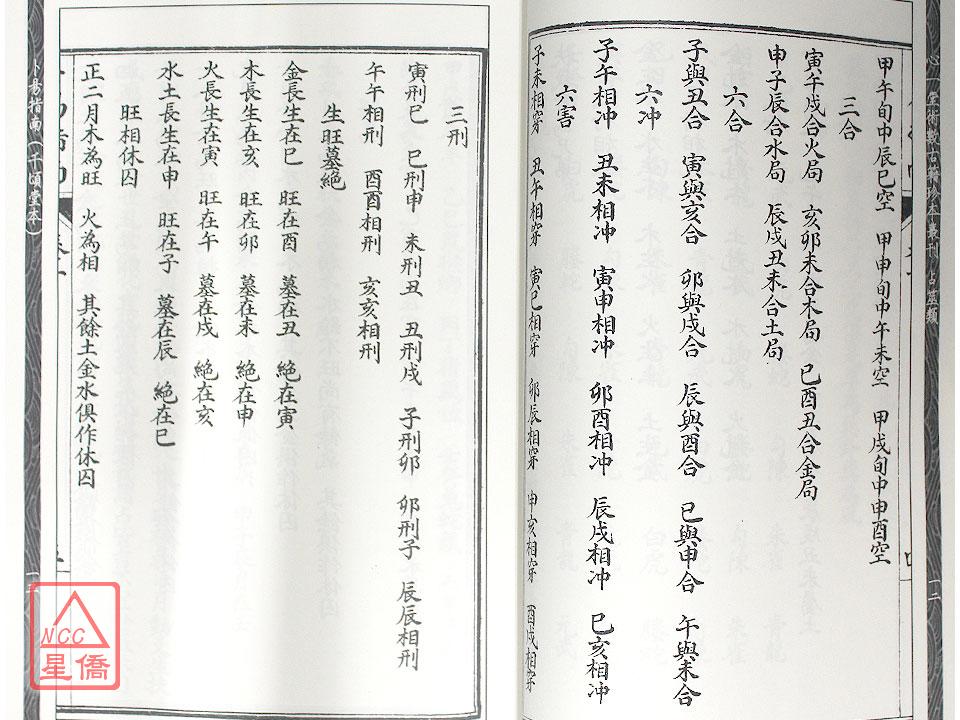 心一堂術數古籍珍本叢刊 占筮類
一二
甲午旬中辰巳空 甲申旬中午未空 甲戌旬中申酉空
三合
寅午戌合火局 亥卯未合木局 巳酉丑合金局
申子辰合水局 辰戌丑未合土局
六合
子與丑合 寅與亥合 卯與戌合 辰與酉合 巳與申合 午與未合
六冲
子午相冲 丑未相冲 寅申相冲 卯酉相冲 辰戌相冲 巳亥相冲
六害
子未相穿 丑午相穿 寅巳相穿 卯辰相穿 申亥相穿 酉戌相穿
三刑
寅刑巳 巳刑申 未刑丑 丑刑戌 子刑卯 卯刑子 辰辰相刑
午午相刑 酉酉相刑 亥亥相刑
生旺墓絶
金長生在巳 旺在酉 墓在丑 絶在寅
木長生在亥 旺在卯 墓在未 絶在申
火長生在寅 旺在午 墓在戌 絶在亥
水土長生在申 旺在子 墓在辰 絶在巳
旺相休囚
正二月木為旺 火為相 其餘土金水俱作休囚
卜易指南(千頃堂本)
NCC
星僑